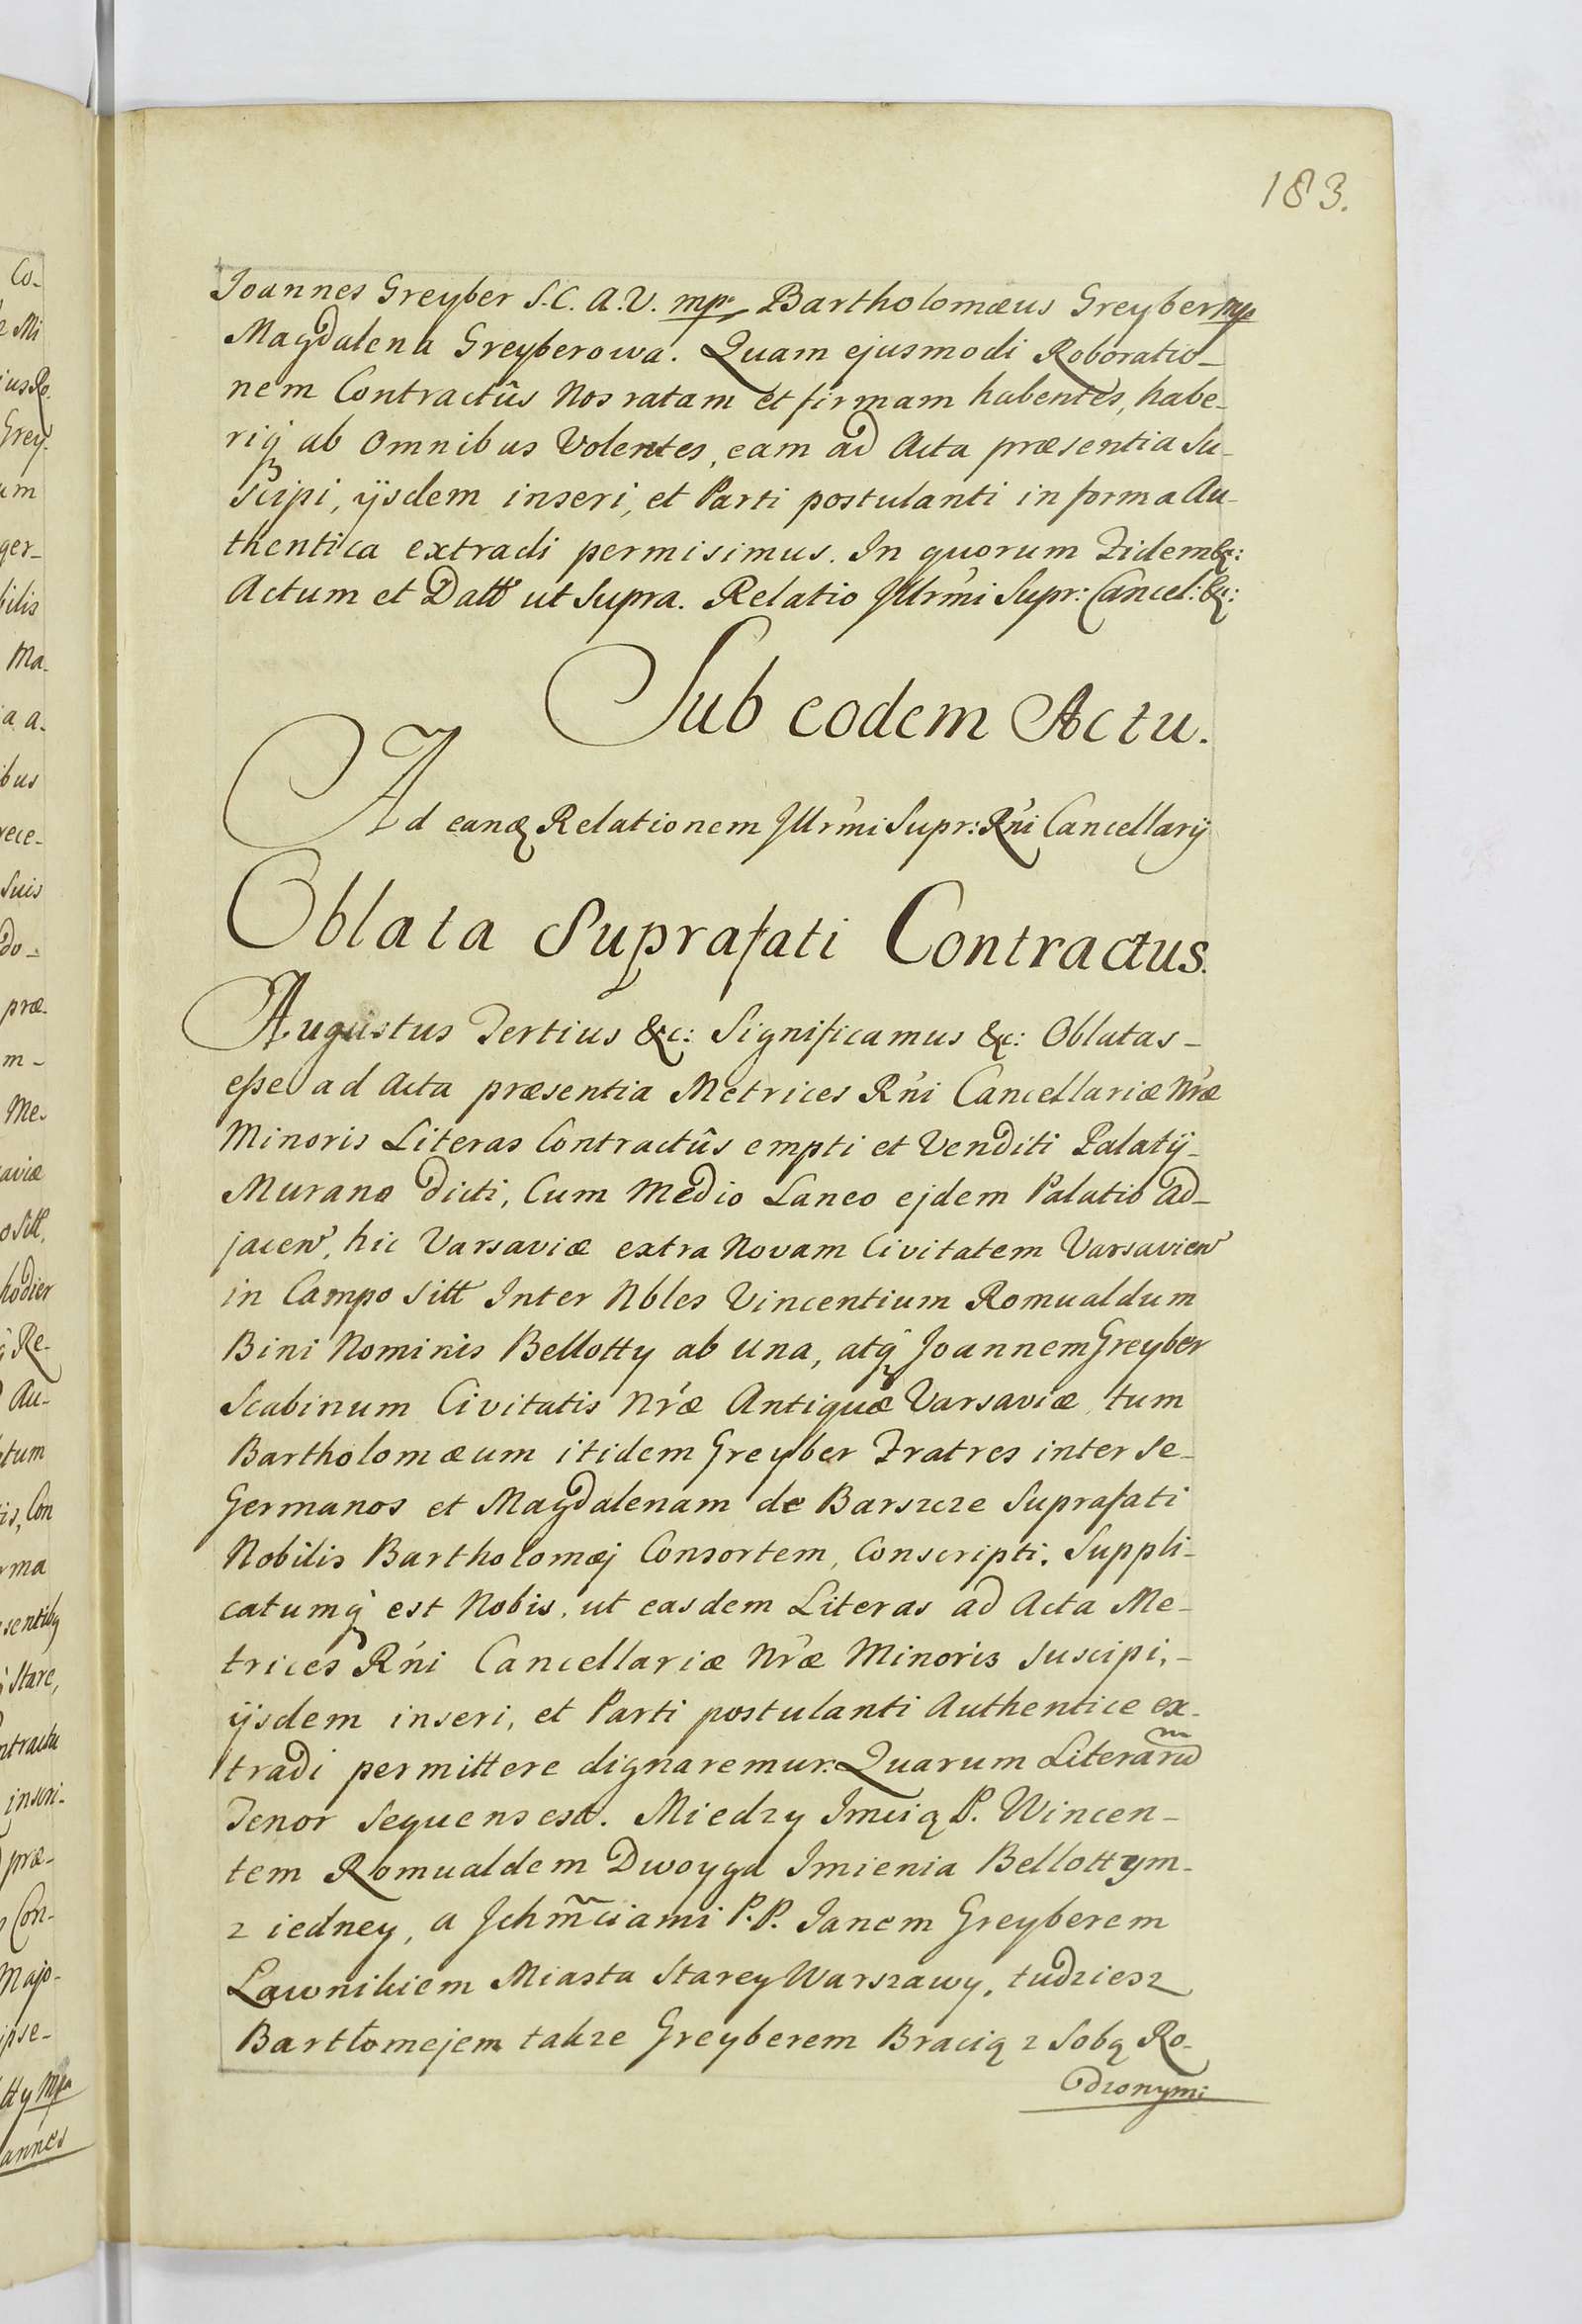 183.
Joannes Greyber S.C. A.V. mp. Bartholomæus Greyber mp
Magdalena Greyberowa. Quam ejusmodi Roboratio_
nem Contractûs Nos ratam et firmam habentes, habe_
riq́ ab Omnibus Volentes, eam ad Acta præsentia Su_
scipi, ijsdem inseri, et Parti postulanti in forma Au_
thentica extradi permisimus. In quorum Fidem &c:
Actum et Datt ut Supra. Relatio Jllrḿi Supr: Cancel: &c:
Sub eodem Actu.
Ad eanq Relationem Jllrḿi Supr: Rńi Cancellarij
Oblata Suprafati Contractus.
Augustus Tertius &c: Significamus &c: Oblatas_
esse ad Acta præsentia Metrices Rńi Cancellariæ Nŕæ
Minoris Literas Contractûs empti et Venditi Palatij_
Murano dicti, Cum Medio Laneo ejdem Palatio Ad_
jacen, hic Varsaviæ extra Novam Civitatem Varsavien
in Campo sitt Inter Nbles Vincentium Romualdum
Bini Nominis Bellotty ab una, atq́ Joannem Greyber
Scabinum Civitatis Nŕæ Antiquæ Varsaviæ, tum
Bartholomæum itidem Greyber Fratres inter se_
Germanos et Magdalenam de Barszcze Suprafati
Nobilis Bartholomæj Consortem, Conscripti. Suppli_
catumq́ est Nobis, ut easdem Literas ad Acta Me_
trices Rńi Cancellariæ Nŕæ Minoris suscipi,_
ijsdem inseri, et Parti postulanti Authentice ex_
tradi permittere dignaremur. Quarum Literarū
Tenor sequens est. Miedzy Jmcią P. Wincen_
tem Romualdem Dwoyga Imienia Bellottym_
z iedney, a Jchm̃ciami P.P. Janem Greyberem
Ławnikiem Miasta Starey Warszawy, tudziesz
Bartłomejem takze Greyberem Bracią z Sobą Ro_
dzonymi